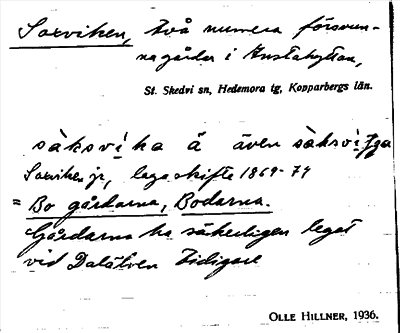 Saxviken, två numera försvun-
na gårdar i Knutshyttan,
St. Skedvi sn, Hedemora tg, Kopparbergs län.
säksvika å även säksvi
Saxviken jr, laga skifte 1869-79
= Bo gårdarna, Bodarna.
Gårdarna ha säkerligen legat
vid Dalälven tidigare
OLLE HILLNER, 1936.